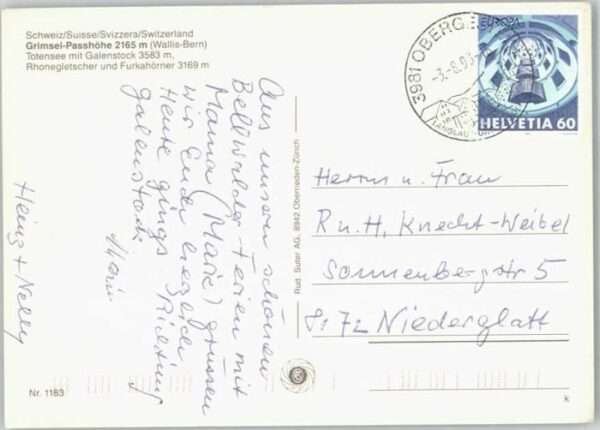 Schweiz/Suisse/Svizzera/Switzerland
Grimsel-Passhöhe 2165 m (Wallis-Bern)
Totensee mit Galenstock 3583 m,
Rhonegletscher und Furkahörner 3169 m
Aus unsern schönen
Bellwalder Ferien mit
Mama (Marie) grüssen
wir Euch herzlich
Heute gings Richtung
Galenstock
Heinz + Nelly
Nr. 1183
Rud. Suter AG, 8942 Oberrieden-Zürich
3981 OBERGE
-3.-8.93-
EUROPA
HELVETIA 60
Herrn u. Frau
R u. H. Knecht-Weibel
Sonnenbergstr 5
8172 Niederglatt
k